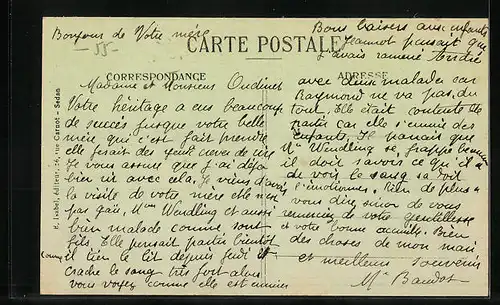 Bonjour de Votre mère
-55-
Bons baisers aux enfants
Jeannot pensait que
j'avais ramené André
CARTE POSTALE
CORRESPONDANCE
ADRESSE
E. Isabel, éditeur, 14, rue Carnot - Sedan
Madame et Monsieur
Votre héritage a eu beaucoup
de succès jusque votre belle
mère qui s'est fait prendre
elle fesait des
Je vous assure que j'ai déjà
bien ri avec cela. Je viens d'avoir
la visite de votre mère elle n'est
pas gaie, Mme Wendling et aussi
bien malade comme son
fils. Elle pensait partir bientôt
il tien le lit depuis jeudi et
crache le sang très fort alors
vous voyez comme elle est ennuiée
avec deux malades car
Raymond ne va pas du
tout. Elle était contente de
partir car elle s'ennuie des
enfants. Il parait que
Mme Wendling se frappe
il doit savoir ce qu'il a
de voir le sang sa doit
l'émotionner. Rien de plus a
vous dire sinon de vous
remercier de votre gentillesse
et votre bonne accueil. Bien
des choses de mon mari
et meilleurs souvenirs
Me Baudot